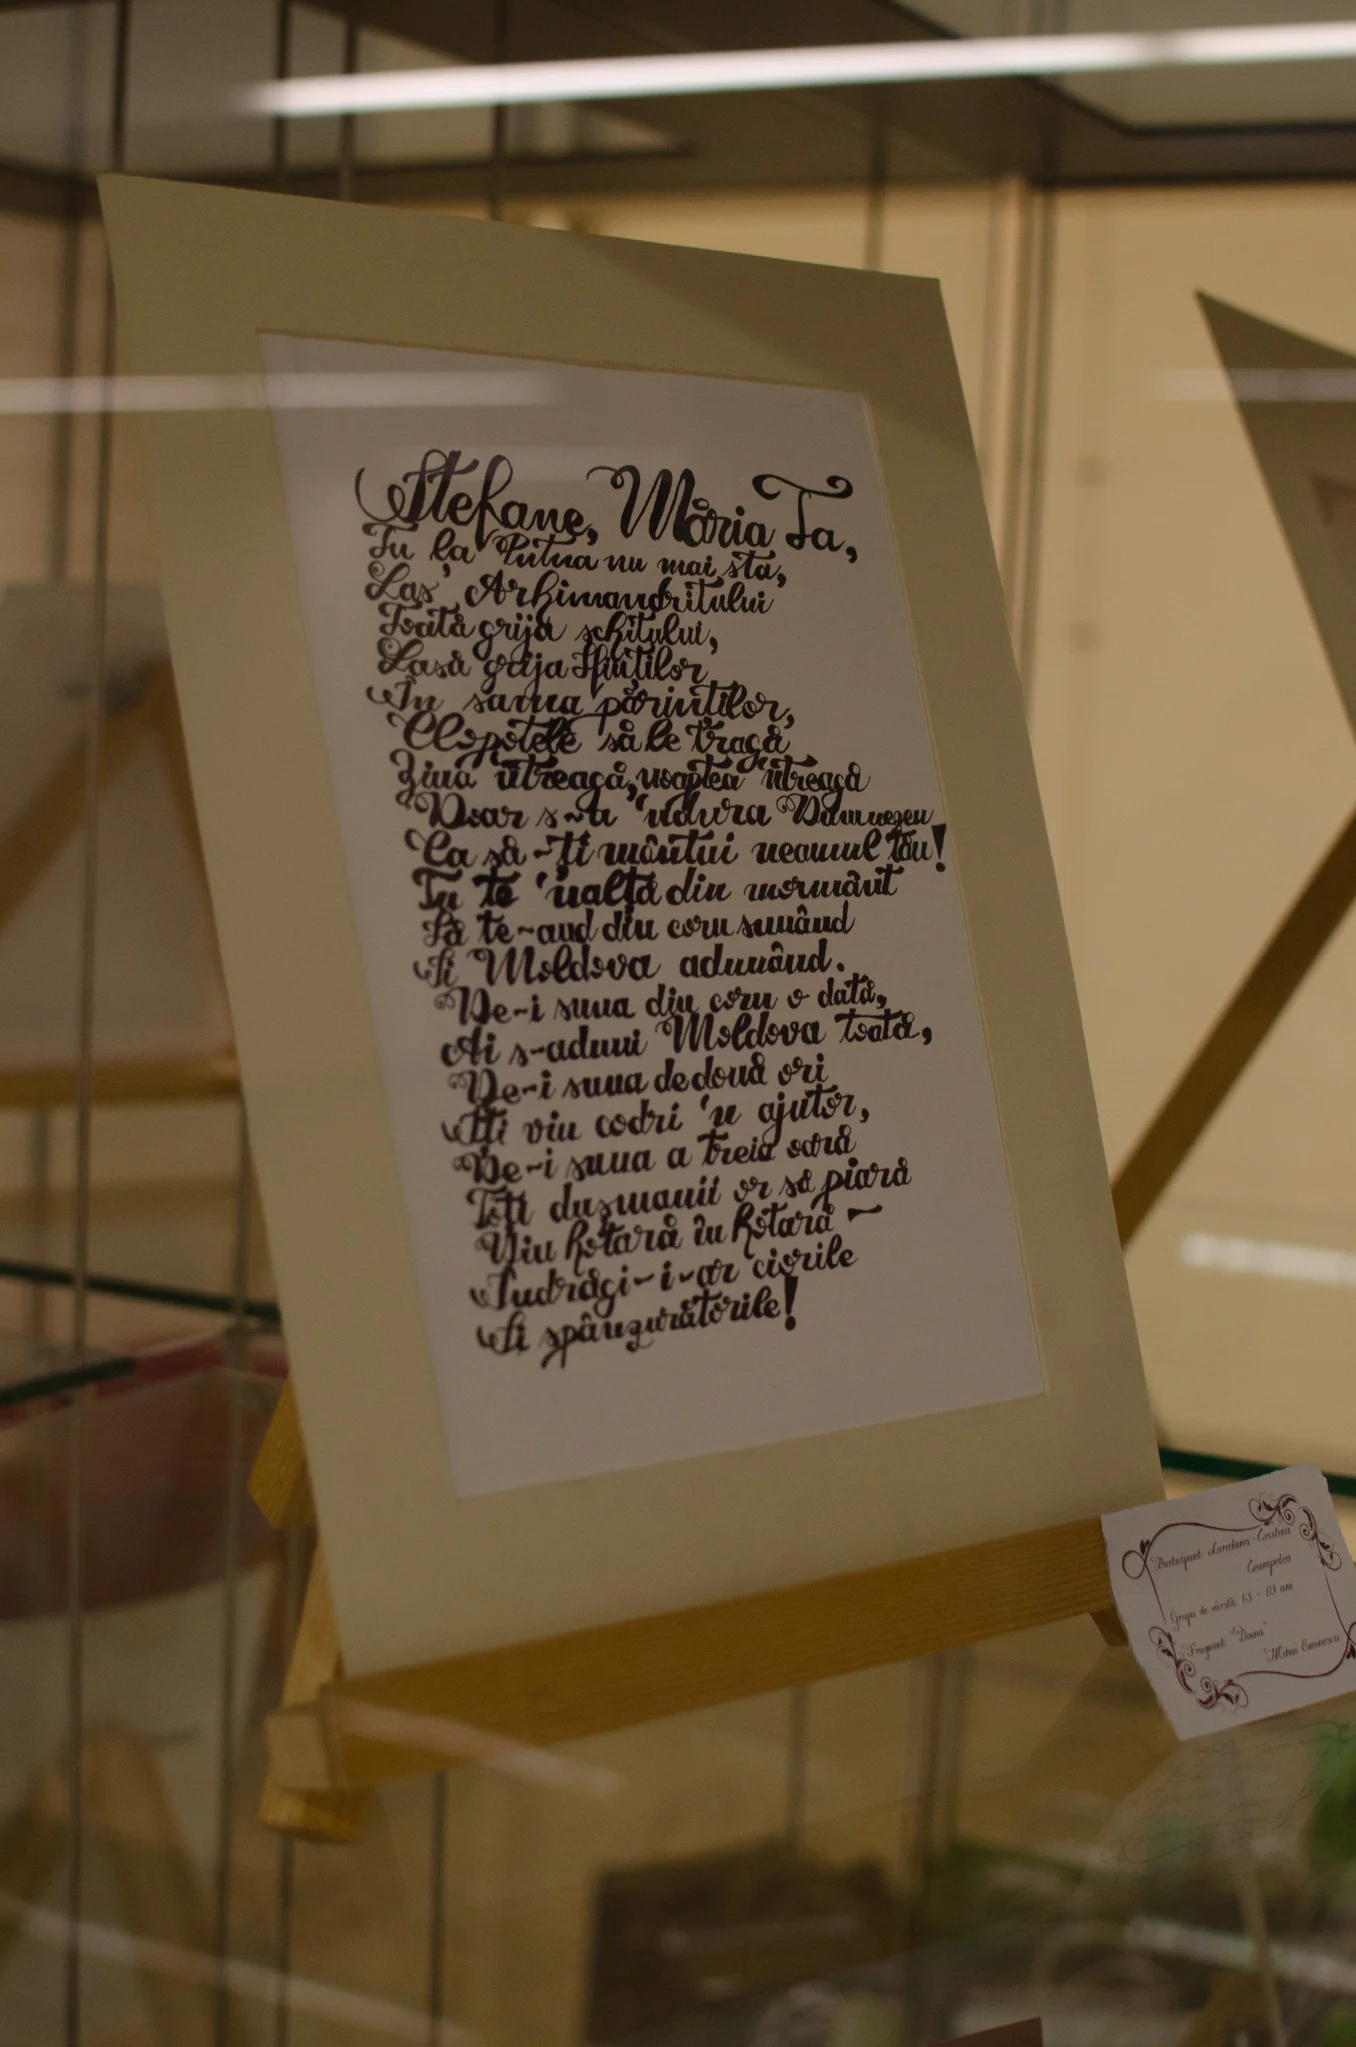 Ștefane, Măria Ta,
Tu la Putna nu mai sta,
Las' Arhimandritului
Toată grija schitului,
Lasă grija Sfinților
În sama părinților,
Clopotele să le tragă
Ziua 'ntreagă, noaptea 'ntreagă
Doar s-a 'ndura Dumnezeu
Ca să-ți mântui neamul tău!
Tu te 'nalță din mormânt
Să te-aud din corn sunând
Și Moldova adunând.
De-i suna din corn o dată,
Ai s-aduni Moldova toată,
De-i suna de două ori
Îți vin codri 'n ajutor,
De-i suna a treia oară
Toți dușmanii or să piară
Din hotară în hotară -
Îndrăgi-i-ar ciorile
Și spânzurătorile!
Participant: Loredana-Cristina
Grupa de vârstă: 13 - 19 ani
Fragment: "Doina"
Mihai Eminescu